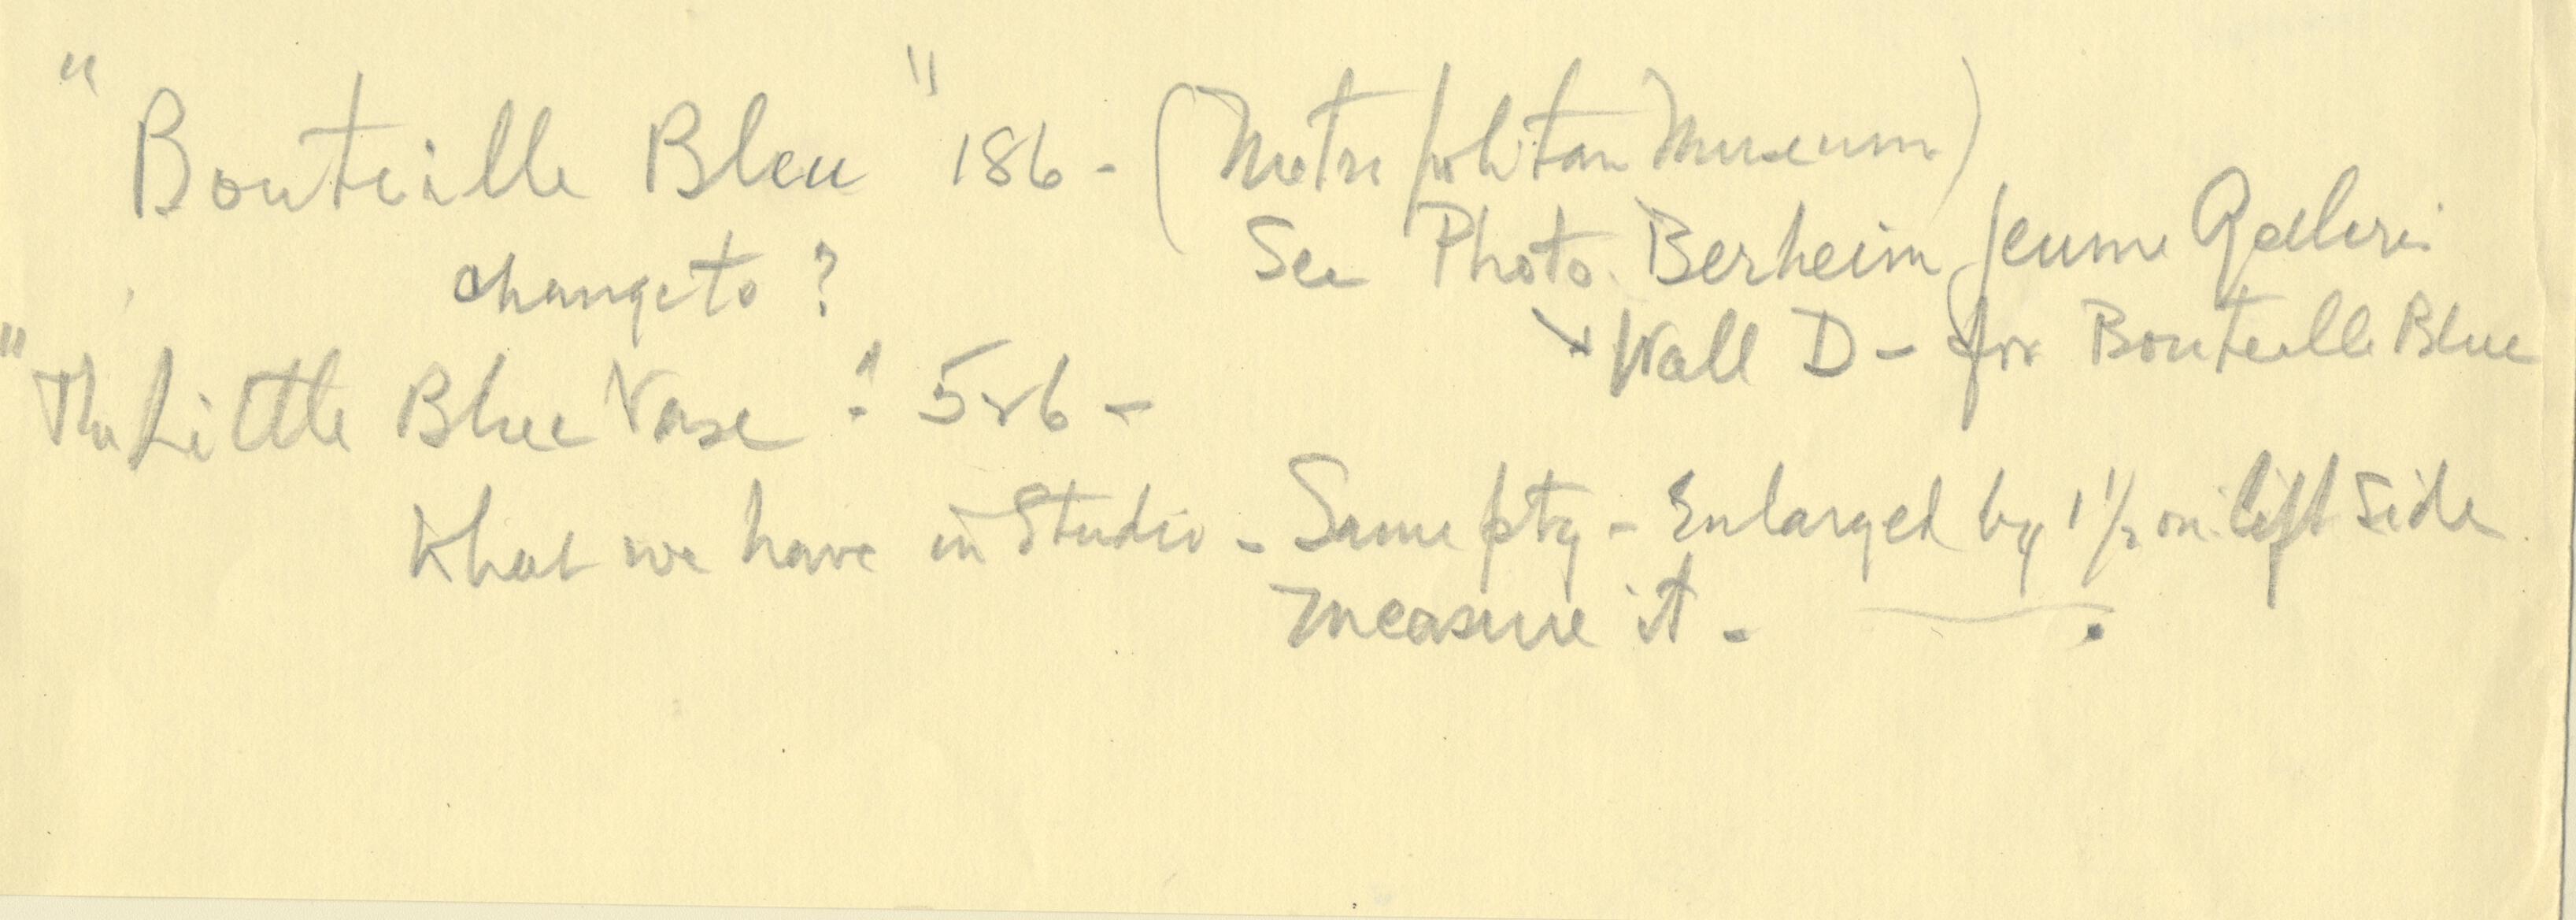 "Bouteille Bleu" 186 - (Metropolitan Museum)
See Photo. Berheim Jeune Galerie
change to ?
Wall D - for Bouteille Blue
"The Little Blue Vase." 526 -
What we have in Studio - Same ptg - Enlarged by 1 1/2 on left side
measure it -